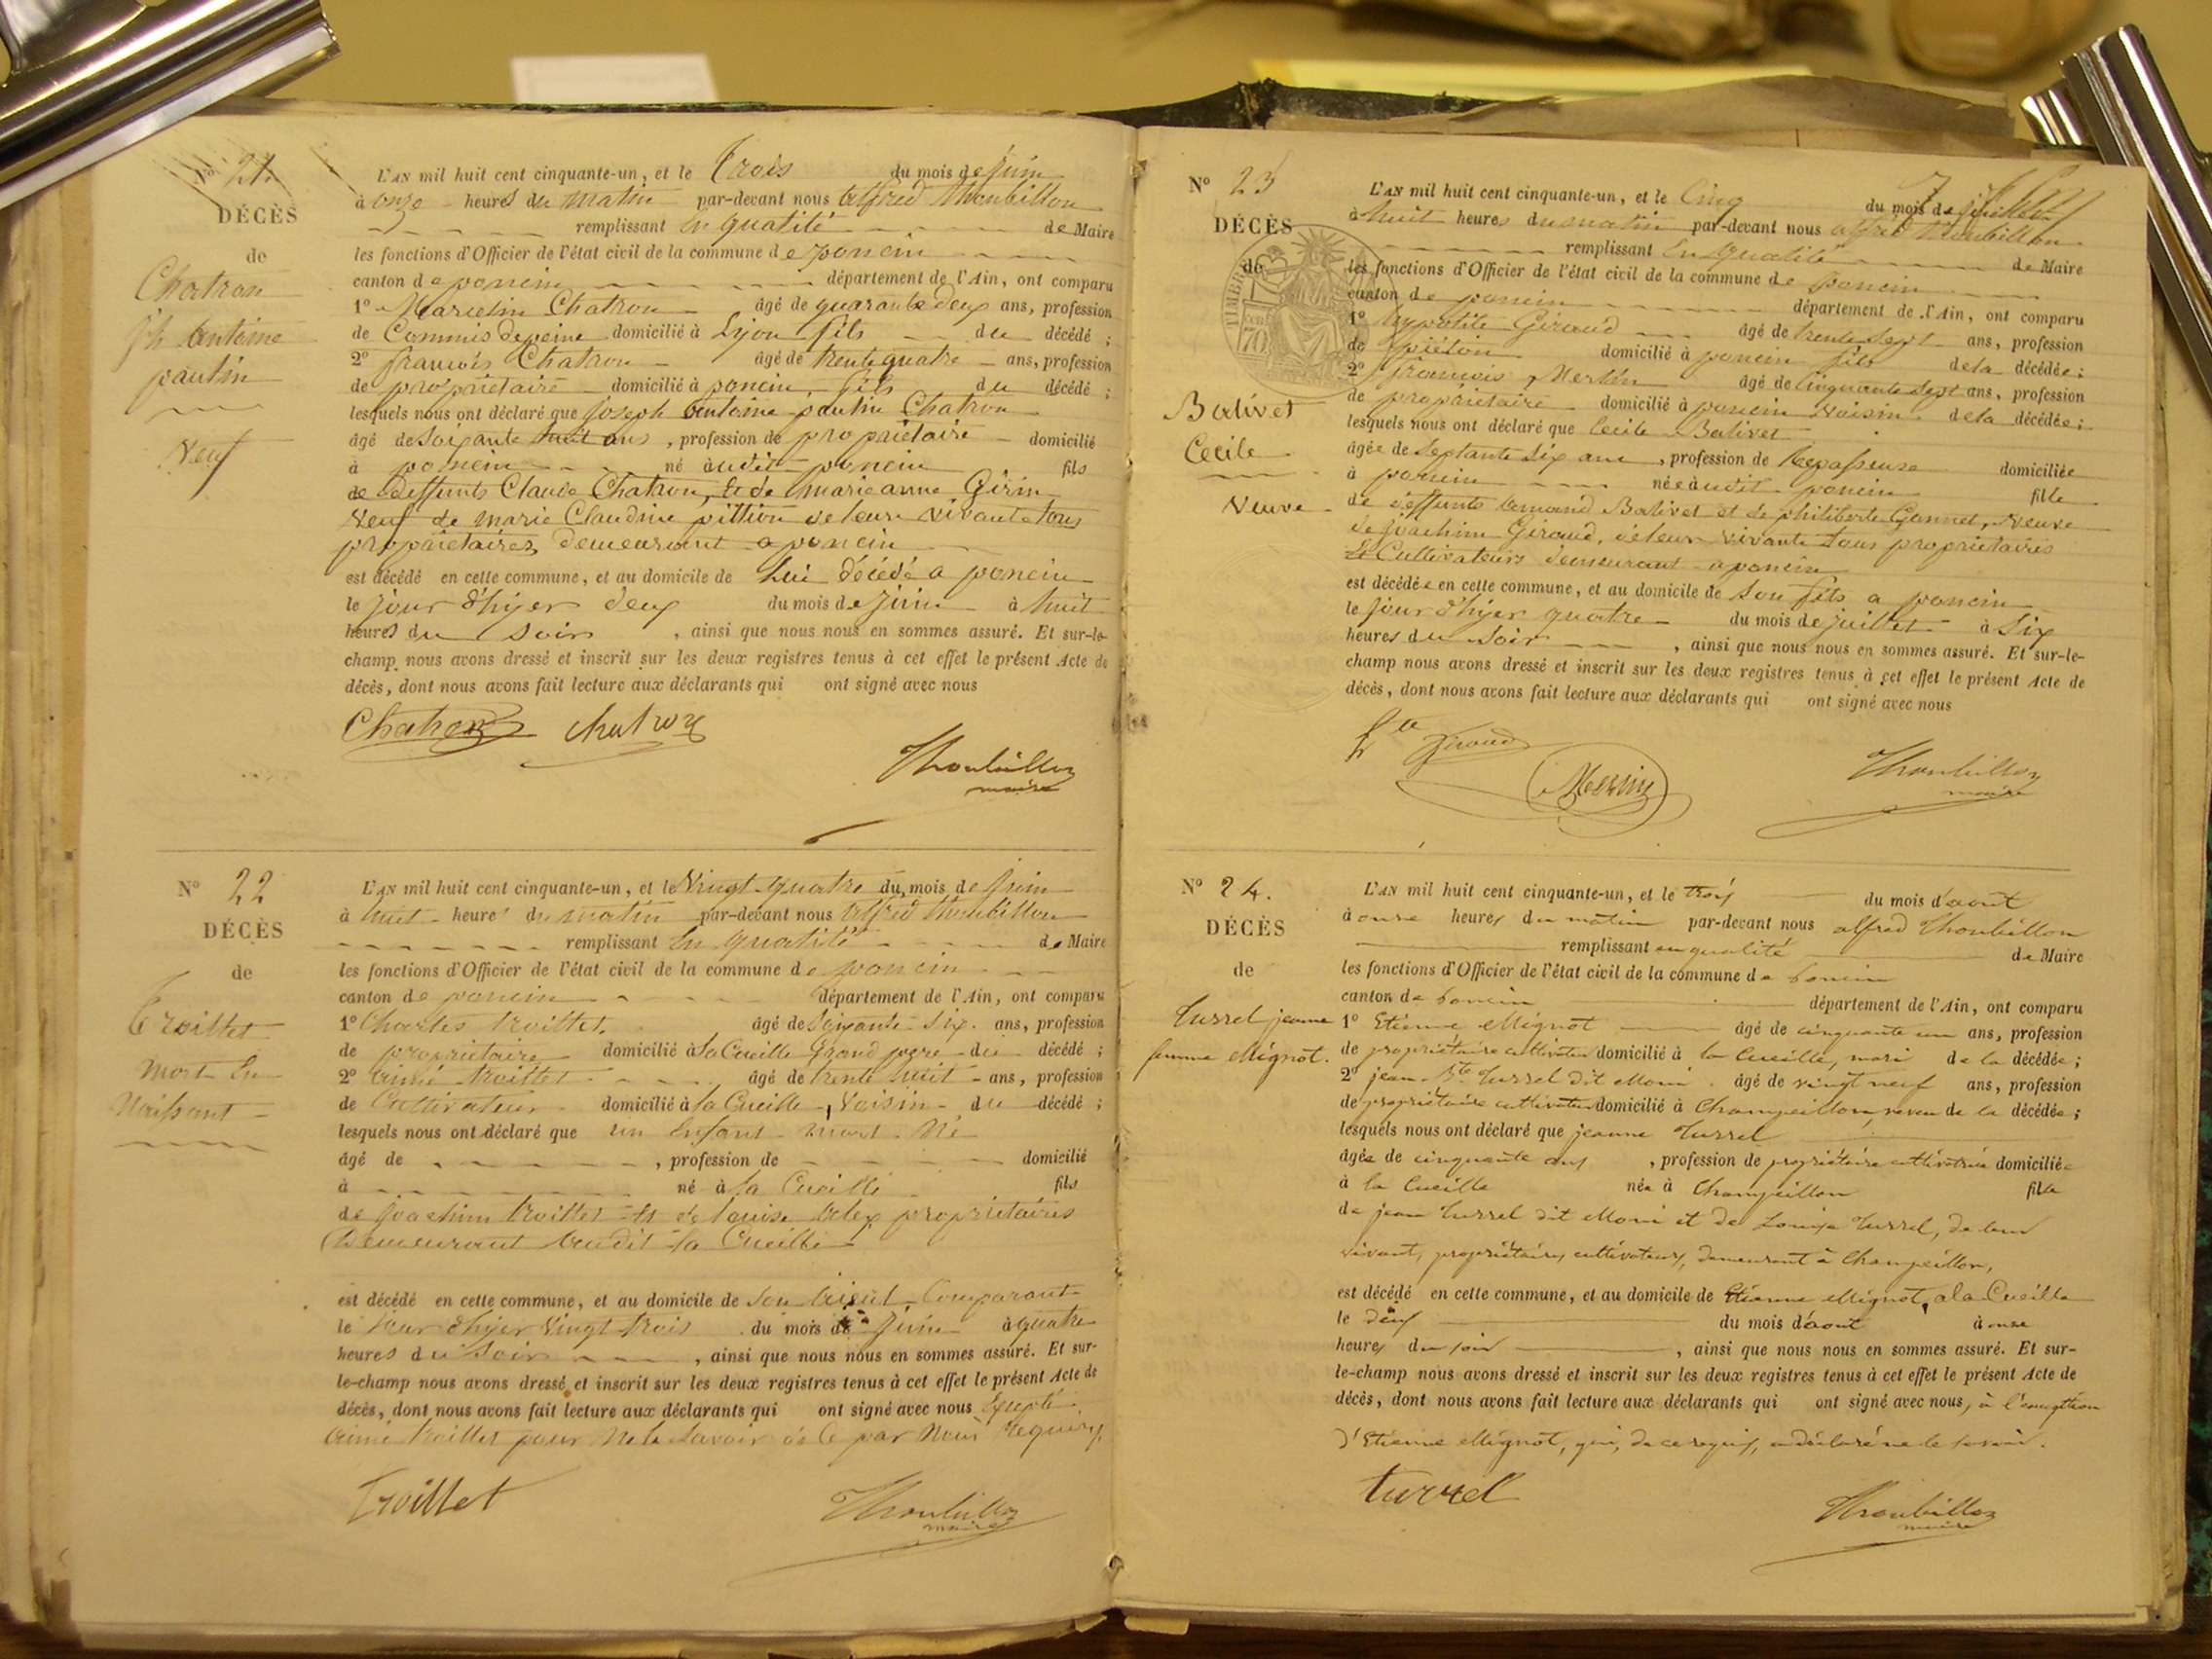 No 21.
DÉCÈS
de
Chatron
Jh Antoine
pautin
Veuf
L'AN mil huit cent cinquante-un, et le Trois du mois de Juin
à onze heures du matin par-devant nous Alfred Thoubillon
remplissant En qualité de Maire
les fonctions d'Officier de l'état civil de la commune de poncin
canton de poncin département de l'Ain, ont comparu
1º Marcelin Chatron âgé de quarante deux ans, profession
de Commis de peine domicilié à Lyon fils du décédé ;
2º françois Chatron âgé de trente quatre ans, profession
de propriétaire domicilié à poncin fils du décédé ;
lesquels nous ont déclaré que Joseph Antoine pautin Chatron
âgé de Soixante huit ans, profession de propriétaire domicilié
à poncin né audit poncin fils
de Deffunts Claude Chatron, et de marie anne Girin
Veuf de marie Claudine pittion de leur vivant tous
propriétaires demeurant a poncin
est décédé en cette commune, et au domicile de Lui décédé a poncin
le jour d'hyer deux du mois de Juin à huit
heures du soir, ainsi que nous nous en sommes assuré. Et sur-le-
champ nous avons dressé et inscrit sur les deux registres tenus à cet effet le présent Acte de
décès, dont nous avons fait lecture aux déclarants qui ont signé avec nous
Chatron chatron
Thoubillon
maire
Nº 22
DÉCÈS
de
Troillet
Mort En
Naissant
L'AN mil huit cent cinquante-un, et le Vingt quatre du mois de Juin
à huit heures du matin par-devant nous Alfred Thoubillon
remplissant En qualité de Maire
les fonctions d'Officier de l'état civil de la commune de poncin
canton de poncin département de l'Ain, ont comparu
1º Charles troillet. âgé de Soixante Six. ans, profession
de propriétaire domicilié à la Cueille Grand père du décédé ;
2º aimé troillet âgé de trente huit ans, profession
de Cultivateur domicilié à la Cueille, Voisin du décédé ;
lesquels nous ont déclaré que un Enfant mort Né
âgé de , profession de domicilié
à né à la Cueille fils
de Joachim troillet et de louise propriétaires
Demeurant audit la Cueille
est décédé en cette commune, et au domicile de Son Comparant
le Jour d'hyer Vingt trois du mois de Juin à quatre
heures du Soir, ainsi que nous nous en sommes assuré. Et sur-
le-champ nous avons dressé et inscrit sur les deux registres tenus à cet effet le présent Acte de
décès, dont nous avons fait lecture aux déclarants qui ont signé avec nous Excepté
aimé troillet pour Ne le Savoir de ce par Nous Requis
Troillet
Thoubillon
maire
Nº 23
DÉCÈS
de
Balivet
Cecile
Veuve
L'AN mil huit cent cinquante-un, et le Cinq du mois de juillet
à huit heures du matin par-devant nous alfred thoubillon
remplissant En qualité de Maire
les fonctions d'Officier de l'état civil de la commune de poncin
canton de poncin département de l'Ain, ont comparu
1º hypolite Giraud âgé de trente Sept ans, profession
de piéton domicilié à poncin fils de la décédée ;
2º françois Merlin âgé de Cinquante Sept ans, profession
de propriétaire domicilié à poncin Voisin de la décédée ;
lesquels nous ont déclaré que Cecile Balivet
âgée de Septante Six ans, profession de Repasseuse domiciliée
à poncin née audit poncin fille
de deffunts Balivet et de philiberte Gonnet, Veuve
de Joachim Giraud, de leur vivant tous propriétaires
et Cultivateurs demeurant a poncin
est décédée en cette commune, et au domicile de Son fils a poncin
le Jour d'hyer quatre du mois de juillet à Six
heures du Soir, ainsi que nous nous en sommes assuré. Et sur-le-
champ nous avons dressé et inscrit sur les deux registres tenus à cet effet le présent Acte de
décès, dont nous avons fait lecture aux déclarants qui ont signé avec nous
Giraud
Thoubillon
maire
Nº 24.
DÉCÈS
de
Turrel jeanne
femme Mignot.
L'AN mil huit cent cinquante-un, et le trois du mois d'aout
à onze heures du matin par-devant nous alfred Thoubillon
remplissant en qualité de Maire
les fonctions d'Officier de l'état civil de la commune de Poncin
canton de Poncin département de l'Ain, ont comparu
1º Etienne Mignot âgé de cinquante un ans, profession
de propriétaire cultivateur domicilié à la Cueille, mari de la décédée ;
2º jean Bte Turrel dit Moni âgé de vingt neuf ans, profession
de propriétaire cultivateur domicilié à Champeillon, neveu de la décédée ;
lesquels nous ont déclaré que jeanne Turrel
âgée de cinquante ans, profession de propriétaire cultivatrice domiciliée
à la Cueille née à Champeillon fille
de jean Turrel dit Moni et de Louise Turrel, de leur
vivant, propriétaires cultivateurs, demeurant à Champeillon,
est décédé en cette commune, et au domicile de Etienne Mignot, a la Cueille
le deux du mois d'aout à onze
heures du soir, ainsi que nous nous en sommes assuré. Et sur-
le-champ nous avons dressé et inscrit sur les deux registres tenus à cet effet le présent Acte de
décès, dont nous avons fait lecture aux déclarants qui ont signé avec nous, à l'exception
d'Etienne Mignot, qui, de ce requis, a déclaré ne le savoir.
turrel
Thoubillon
maire